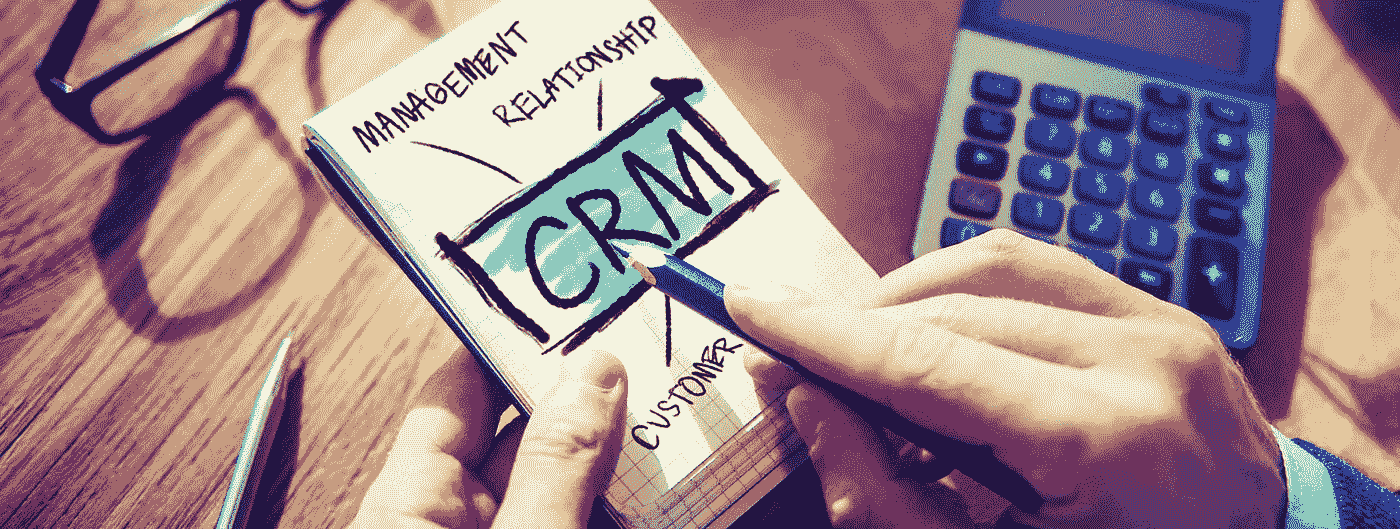 MANAGEMENT
RELATIONSHIP
CRM
CUSTOMER